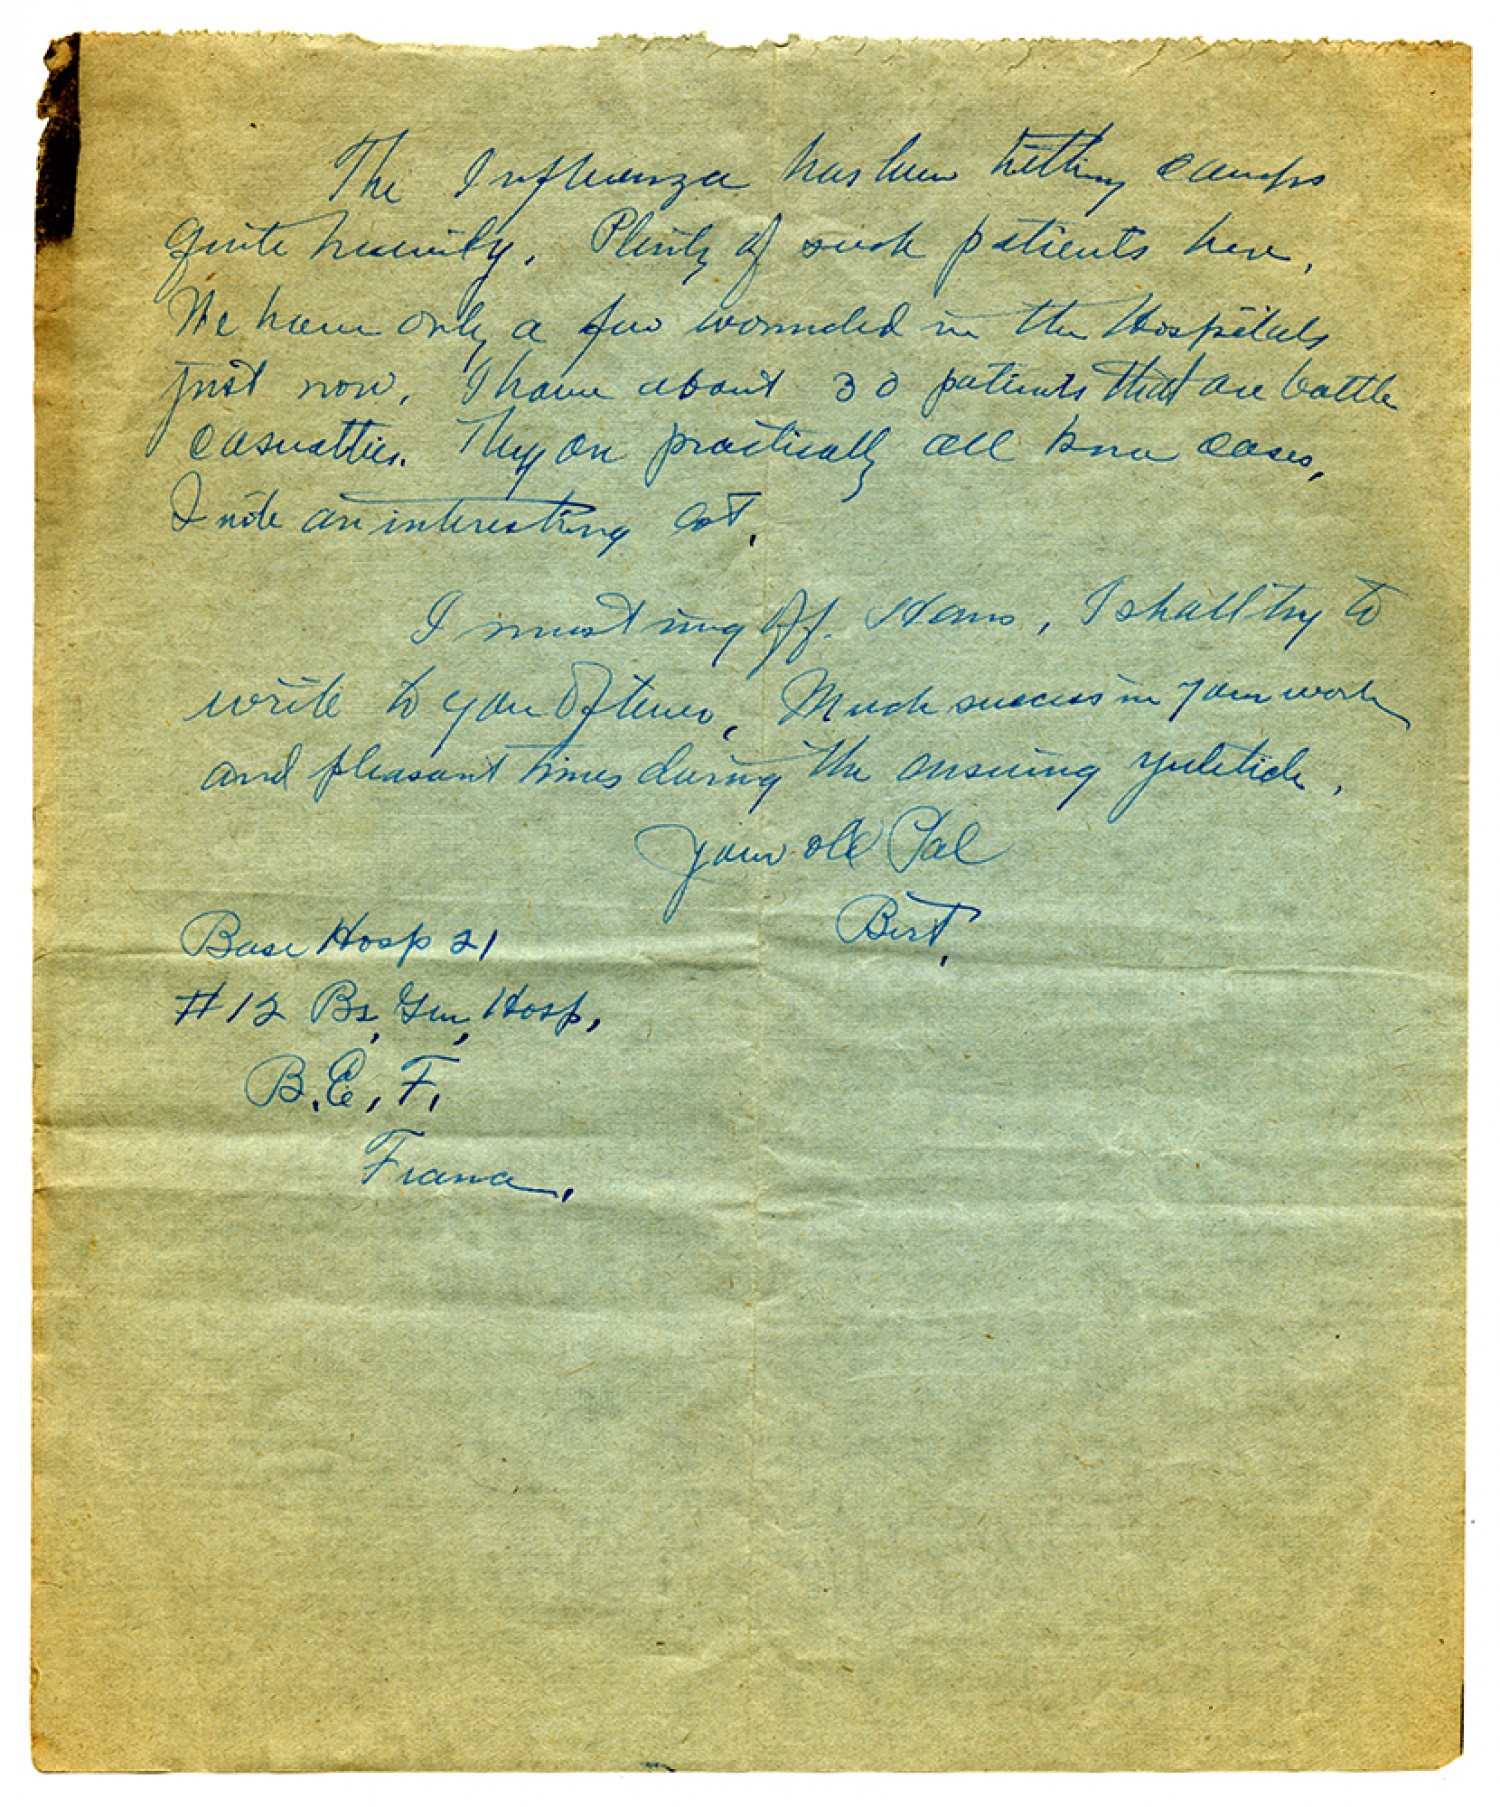 The Influenza has been hitting camps
quite heavily. Plenty of such patients here.
We have only a few wounded in the Hospitals
just now. I have about 30 patients that are battle
casualties. They are practically all knee cases,
an interesting lot.
I must ring off. Hans, I shall try to
write to you oftener. Much success in your work
and pleasant times during the ensuing yuletide.
Your old Pal
Bert.
Base Hosp 21
#12 Br. Gen. Hosp.
B.E.F.
France.